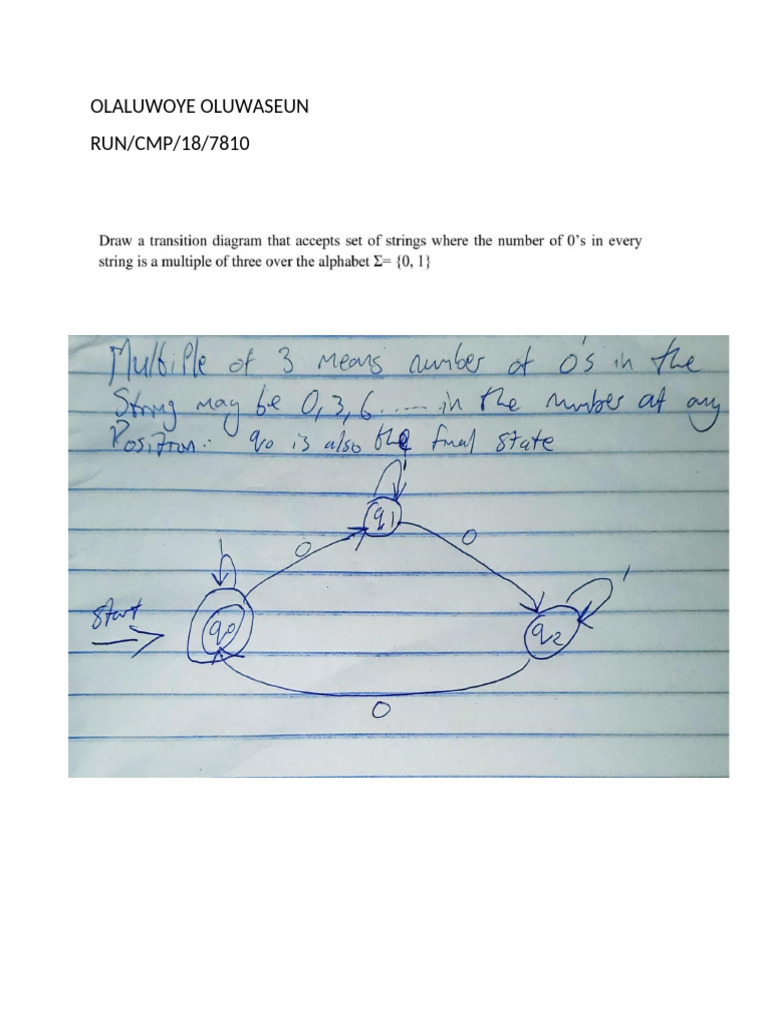 OLALUWOYE OLUWASEUN
RUN/CMP/18/7810
Draw a transition diagram that accepts set of strings where the number of 0's in every
string is a multiple of three over the alphabet Σ= {0, 1}
Multiple of 3 means number of 0's in the
String may be 0, 3, 6 ..... in the number at any
Position. q0 is also the final state
1
q1
0
0
1
1
start
q0
q2
0